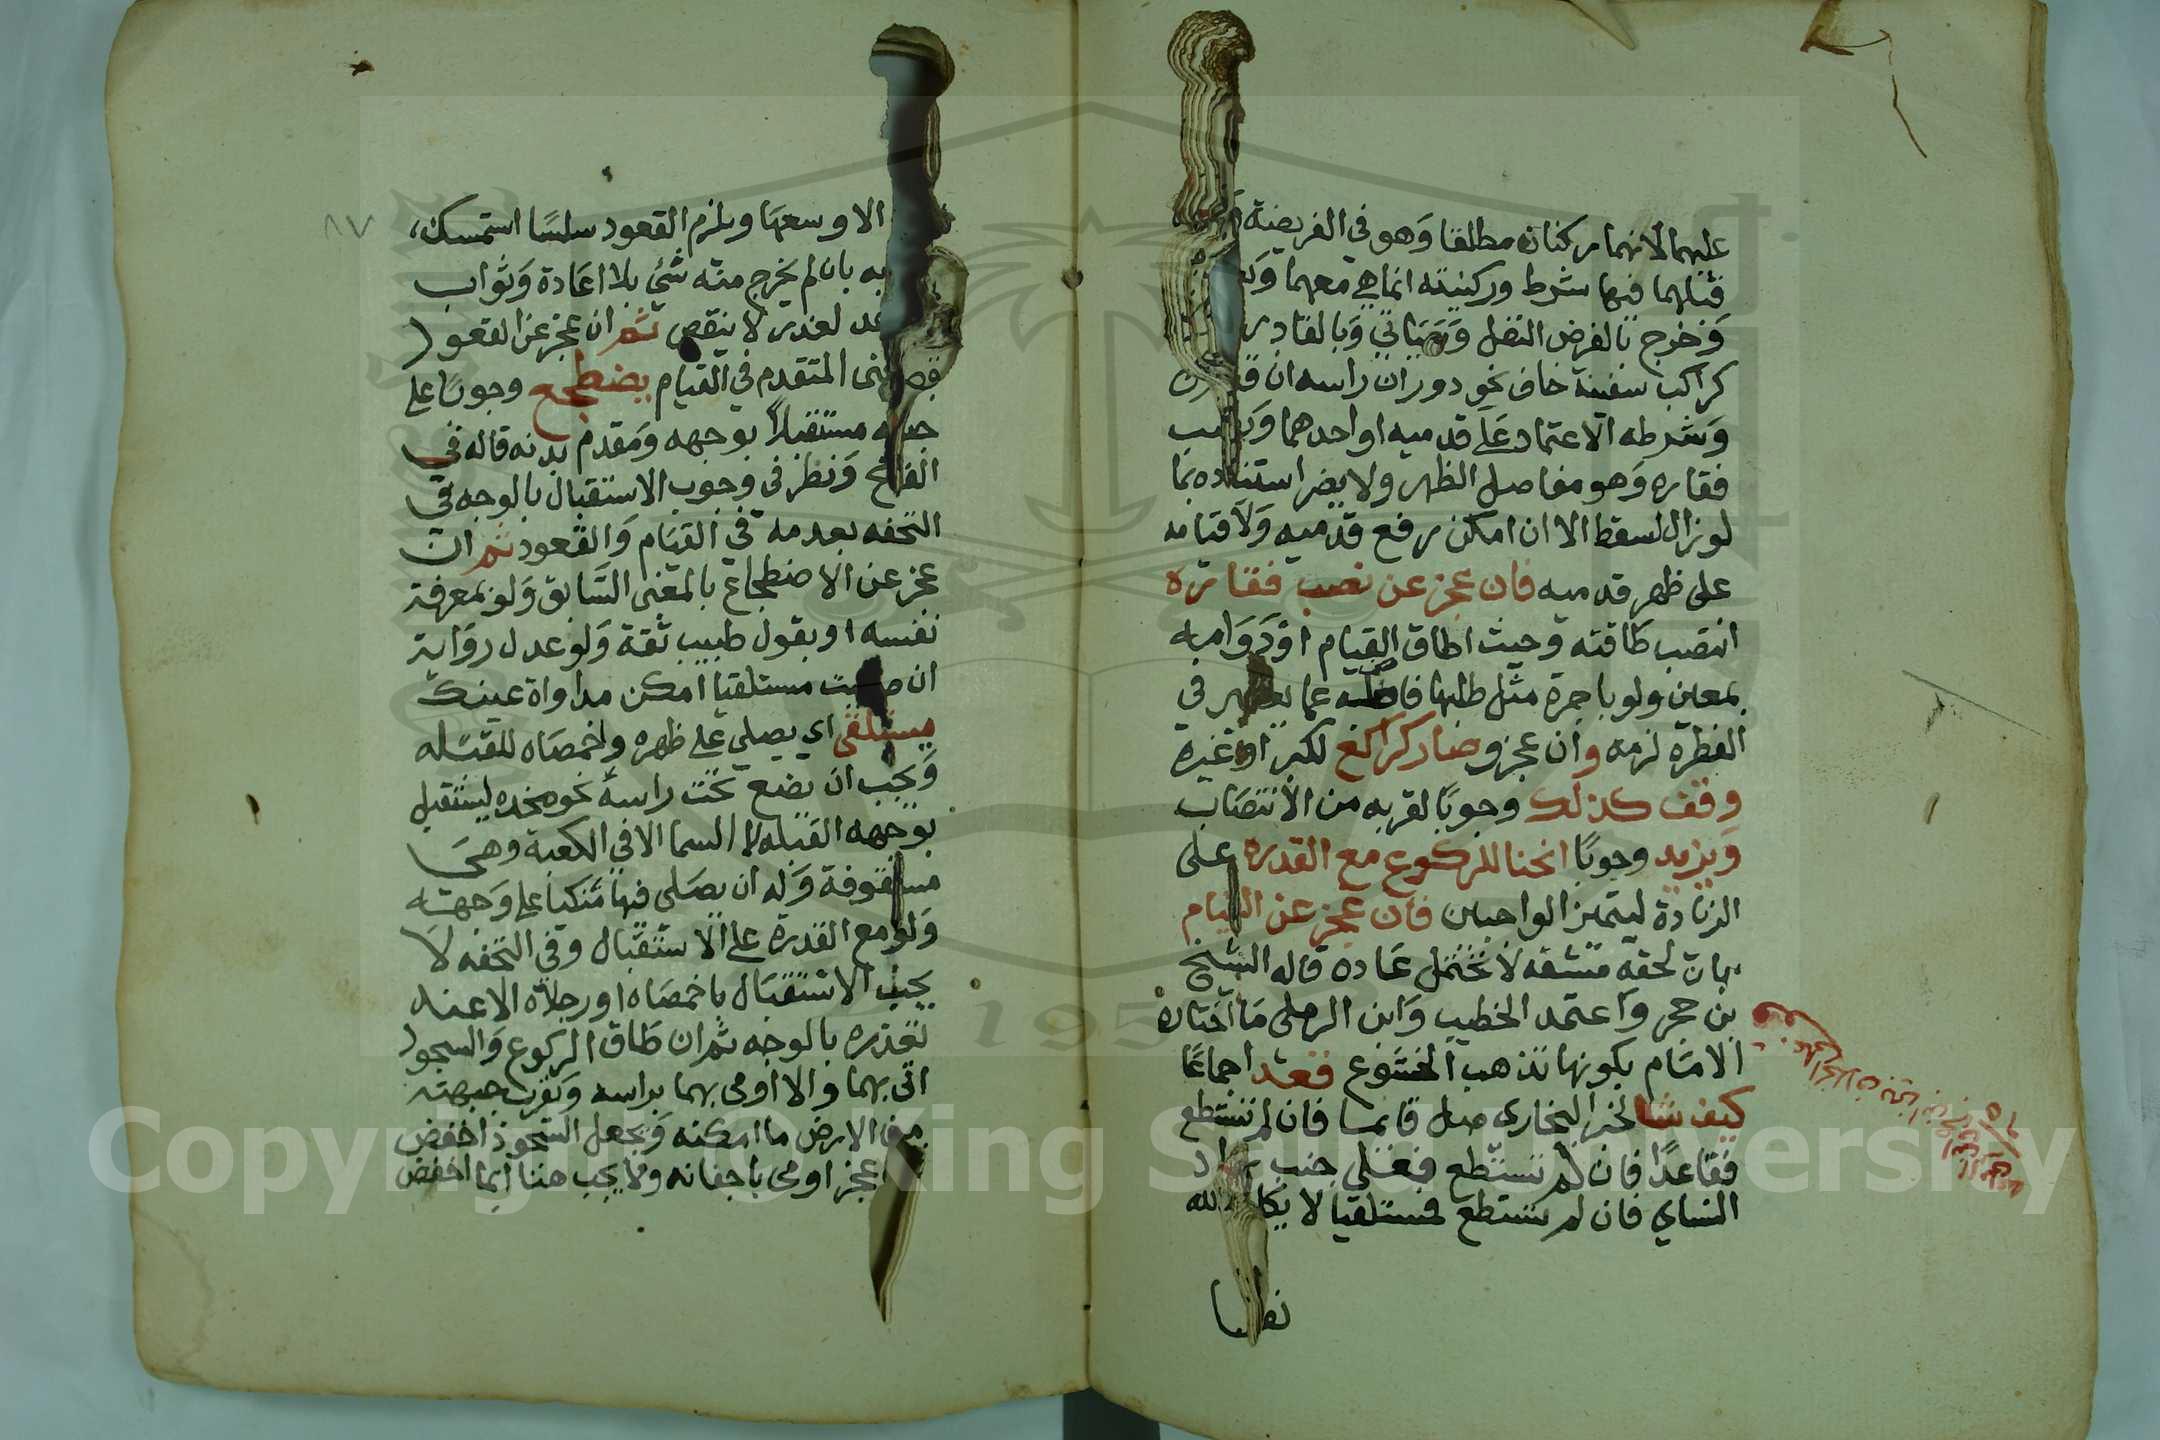 عليهما لانهما ركنان مطلقا وهو في الفريضة
قبلهما فيها شرط وركنيته انما هي معهما
وخرج بالفرض النفل وسياتي وبالقادر
كراكب سفينة خاف نحو دوران راسه ان
وشرطه الاعتماد على قدميه او احدهما
فقاره وهو مفاصل الظهر ولا يضر استناده بما
لو زال لسقط الا ان امكن رفع قدميه ولا قيامه
على ظهر قدميه فان عجز عن نصب فقاره
انتصب طاقته وحيث اطاق القيام او دوامه
بمعين ولو باجرة مثل طلبها فاضلة عما يعتبر في
الفطرة لزمه وان عجز وصار كراكع لكبر او غيره
وقف كذلك وجوبا لقربه من الانتصاب
ويزيد وجوبا انحنا للركوع مع القدره على
الزيادة ليتميز الواجبين فان عجز عن القيام
بان لحقه مشقه لا تحتمل عادة قاله الشيخ
بن حجر واعتمد الخطيب وابن الرملي ما اختاره
الامام بكونها تذهب الخشوع قعد اجماعا
كيف شا لخبر البخاري صل قائما فان لم تستطع
فقاعدا فان لم تستطع فعلى جنب زاد
النساي فان لم تستطع فمستلقيا لا يكلف الله
نفسا
٨٧
الا وسعها ويلزم القعود سلسا استمسك
به بان لم يخرج منه شي بلا اعادة وثواب
لعذر لا ينقص ثم ان عجز عن القعود
المتقدم في القيام يضطجع وجوبا على
جنبه مستقبلا بوجهه ومقدم بدنه قاله في
الفتح ونظر في وجوب الاستقبال بالوجه في
التحفه بعدمه في القيام والقعود ثم ان
عجز عن الاضطجاع بالمعنى السابق ولو بمعرفة
نفسه او بقول طبيب ثقة ولو عدل رواية
ان صليت مستلقيا امكن مداواة عينك
مستلقى اي يصلي على ظهره واخمصاه للقبله
ويجب ان يضع تحت راسه نحو مخده ليستقبل
بوجهه القبله لا السما الا في الكعبة وهي
مسقوفة وله ان يصلي فيها منكبا على وجهه
ولو مع القدرة على الاستقبال وفي التحفه لا
يجب الاستقبال باخمصاه او رجلاه الا عند
تعذره بالوجه ثم ان طاق الركوع والسجود
اتى بهما والا اومى بهما براسه وتقرب جبهته
من الارض ما امكنه ويجعل السجود اخفض
عجز اومى باجفانه ولا يجب هنا ايما اخفض